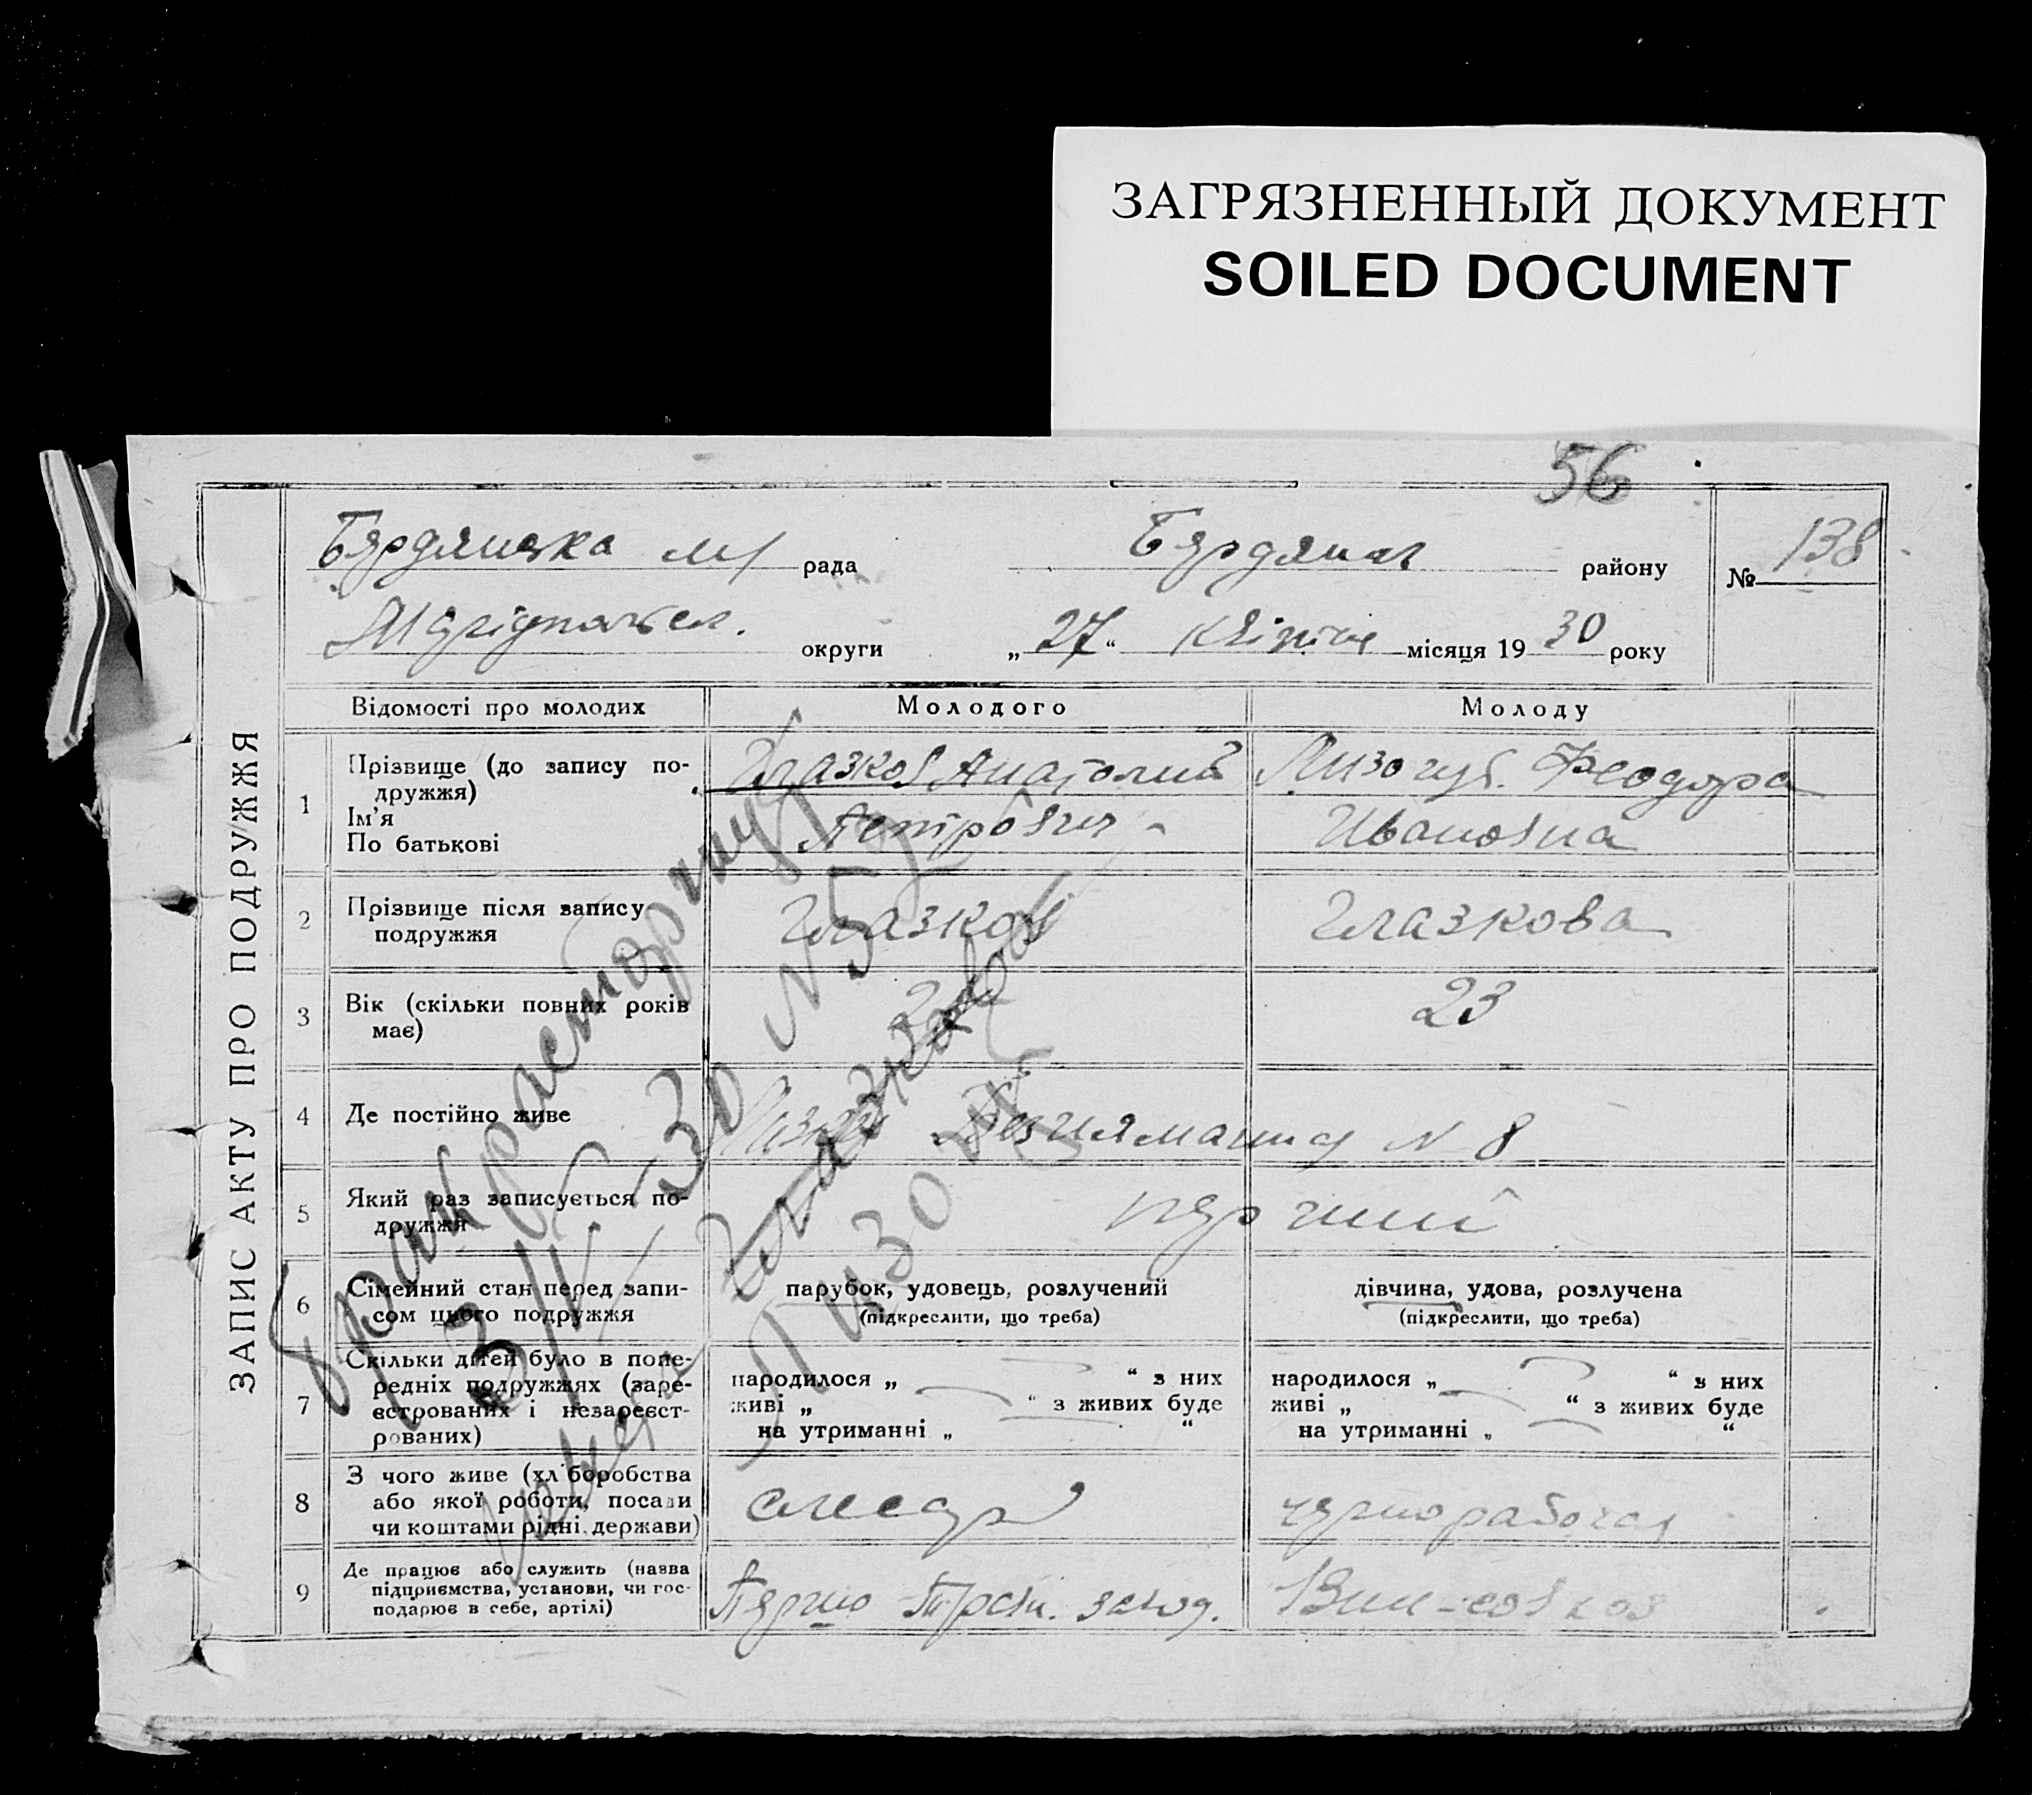 ЗАГРЯЗНЕННЫЙ ДОКУМЕНТ
SOILED DOCUMENT
56
ЗАПИС АКТУ ПРО ПОДРУЖЖЯ
Бердянська м/ рада Бердянськ району № 138
округи „27“ квітня місяця 1930 року
Відомості про молодих Молодого Молоду
1 Прізвище (до запису подружжя) Глазков Анатолий Лизогуб Феодора
Ім'я
По батькові Петрович Ивановна
2 Прізвище після запису подружжя Глазков Глазкова
3 Вік (скільки повних років має) 23
4 Де постійно живе N 8
5 Який раз записується подружжя перший
6 Сімейний стан перед записом цього подружжя парубок, удовець, розлучений дівчина, удова, розлучена
(підкреслити, що треба) (підкреслити, що треба)
7 Скільки дітей було в попередніх подружжях (зареєстрованих і незареєстрованих)
народилося „ “ з них народилося „ “ з них
живі „ “ з живих буде живі „ “ з живих буде
на утриманні „ “ на утриманні „ “
8 З чого живе (хліборобства або якої роботи, посади чи коштами рідні, держави) слесар чернорабочая
9 Де працює або служить (назва підприємства, установи, чи господарює в себе, артілі) завод.
брак расторгнут
N 57
Глазков